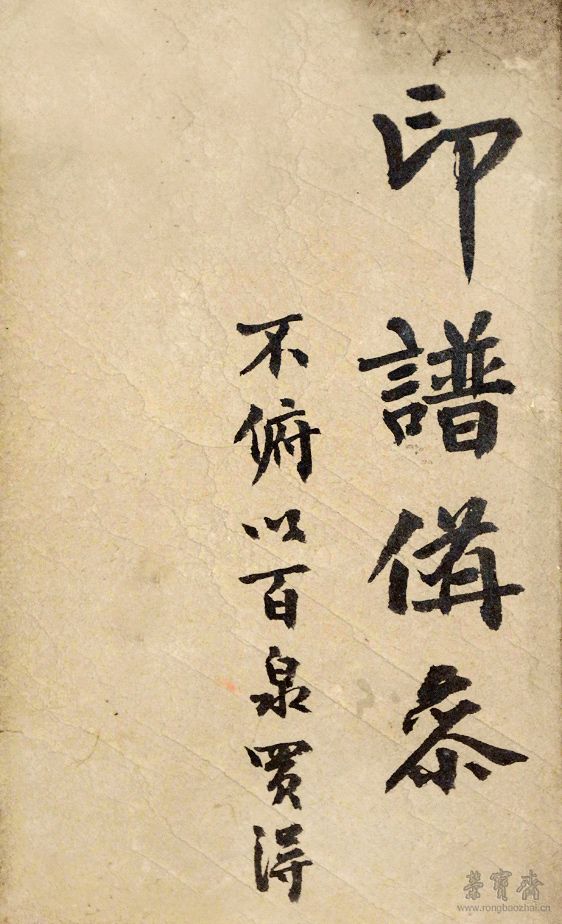 印譜備叅
不俯以百泉買得
榮寶齋
www.rongbaozhai.cn